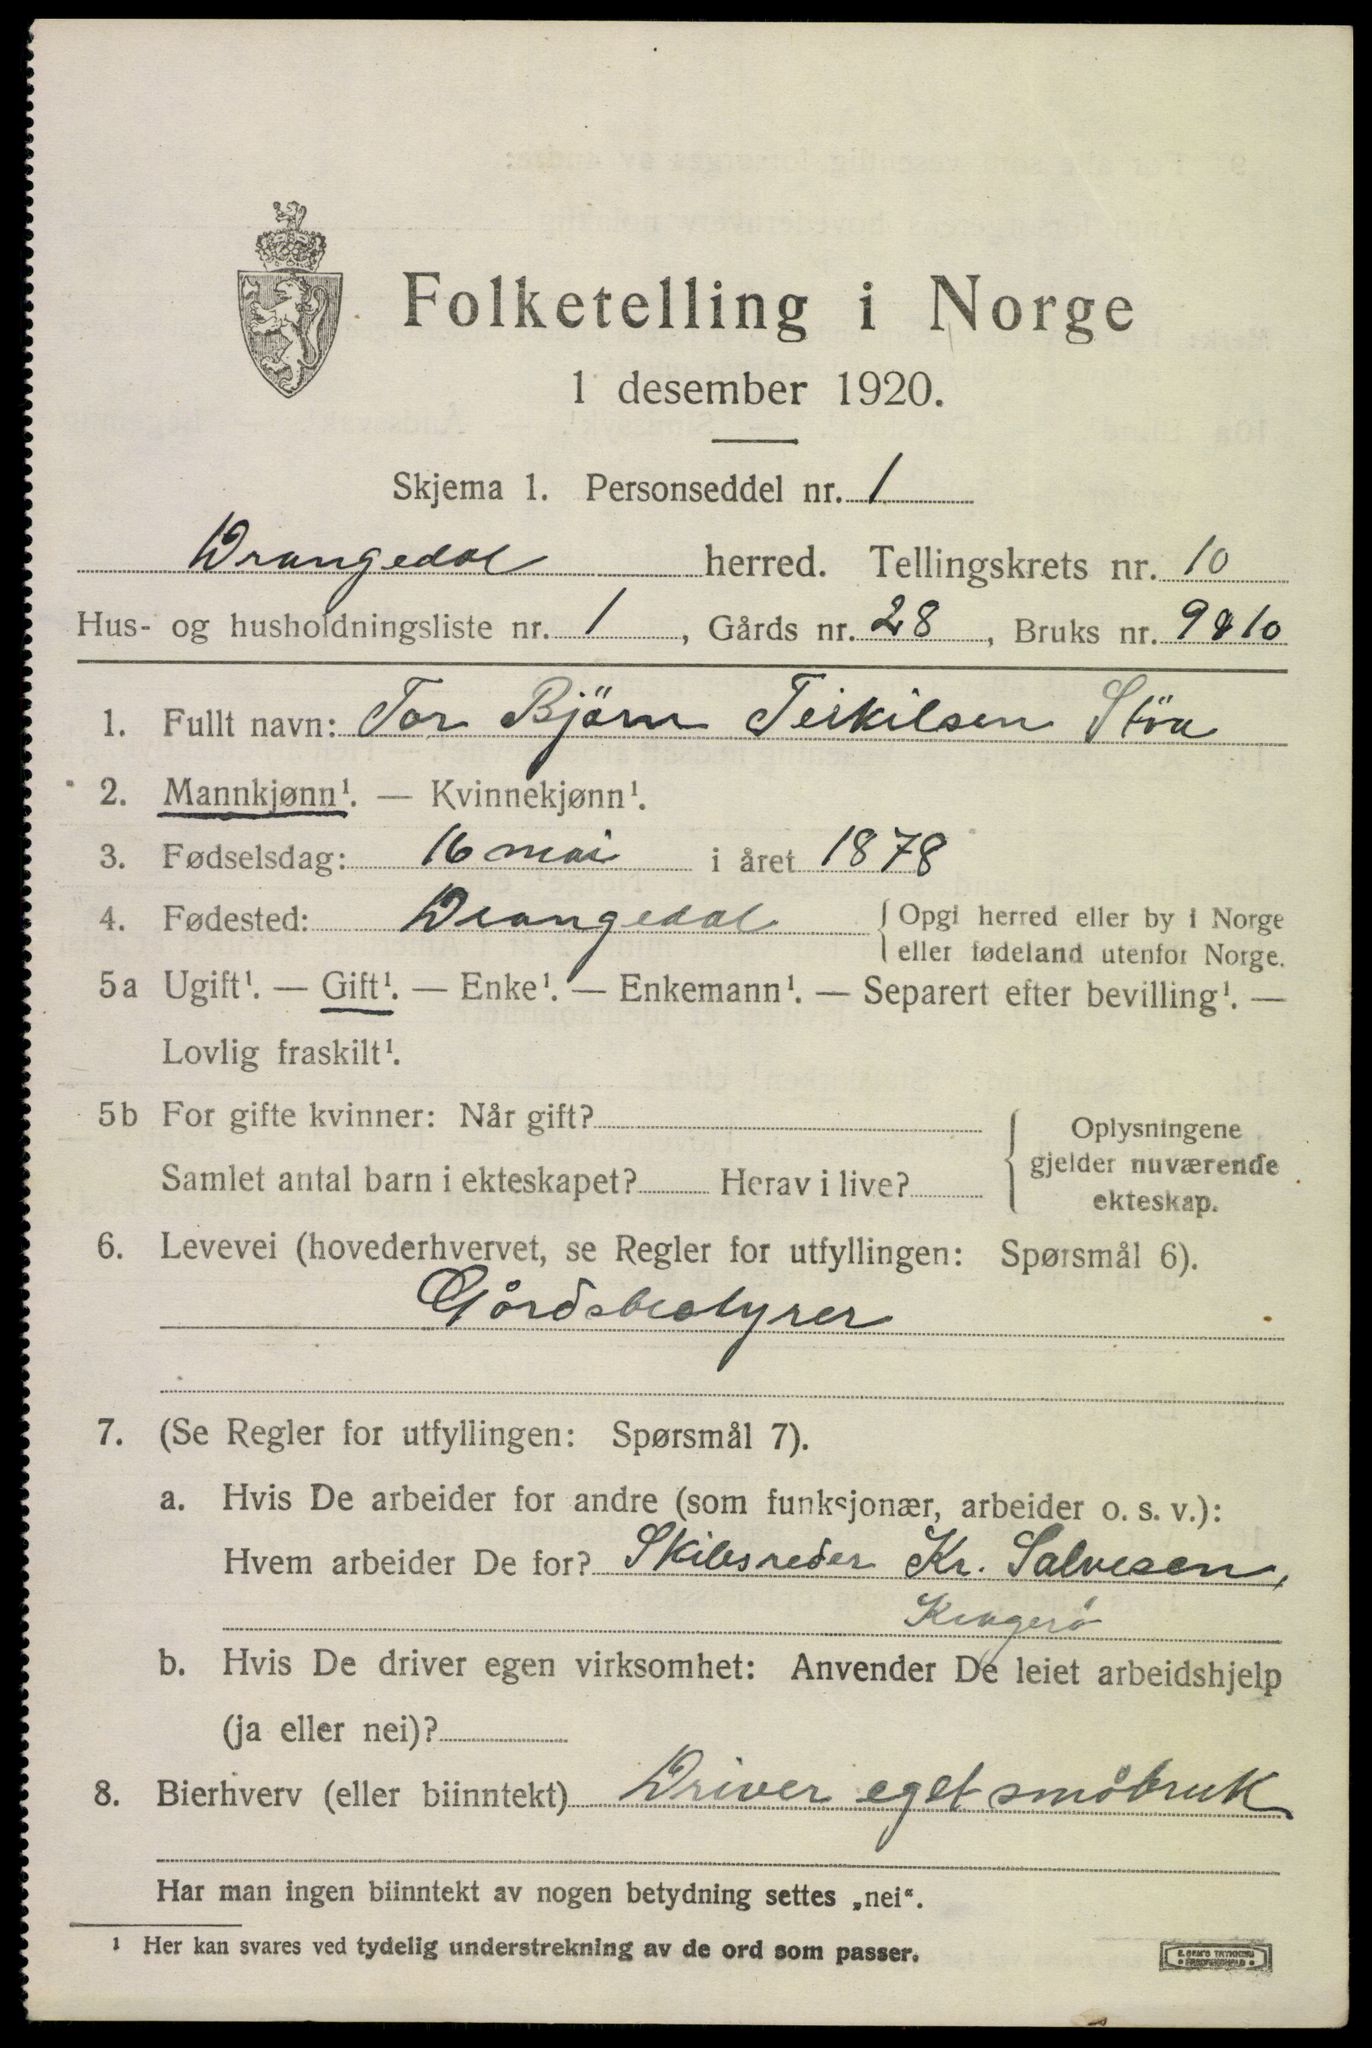 Folketelling i Norge
1 desember 1920.
Skjema 1. Personseddel nr. 1
Drangedal herred. Tellingskrets nr. 10
Hus- og husholdningsliste nr. 1, Gårds nr. 28, Bruks nr. 9 & 10
1. Fullt navn: Tor Björn Teikilsen Stöa
2. Mannkjønn¹. — Kvinnekjønn¹.
3. Fødselsdag: 16 mai i året 1878
4. Fødested: Drangedal {Opgi herred eller by i Norge
eller fødeland utenfor Norge.
5a Ugift¹. — Gift¹. — Enke¹. — Enkemann¹. — Separert efter bevilling¹. —
Lovlig fraskilt¹.
5b For gifte kvinner: Når gift?
Samlet antal barn i ekteskapet? Herav i live?
{Oplysningene
gjelder nuværende
ekteskap.
6. Levevei (hovederhvervet, se Regler for utfyllingen: Spørsmål 6).
Gårdsbestyrer
7. (Se Regler for utfyllingen: Spørsmål 7).
a. Hvis De arbeider for andre (som funksjonær, arbeider o. s. v.):
Hvem arbeider De for? Skibsreder Kr. Salvesen,
Kragerö
b. Hvis De driver egen virksomhet: Anvender De leiet arbeidshjelp
(ja eller nei)?
8. Bierhverv (eller biinntekt) Driver eget småbruk
Har man ingen biinntekt av nogen betydning settes „nei“.
¹ Her kan svares ved tydelig understrekning av de ord som passer.